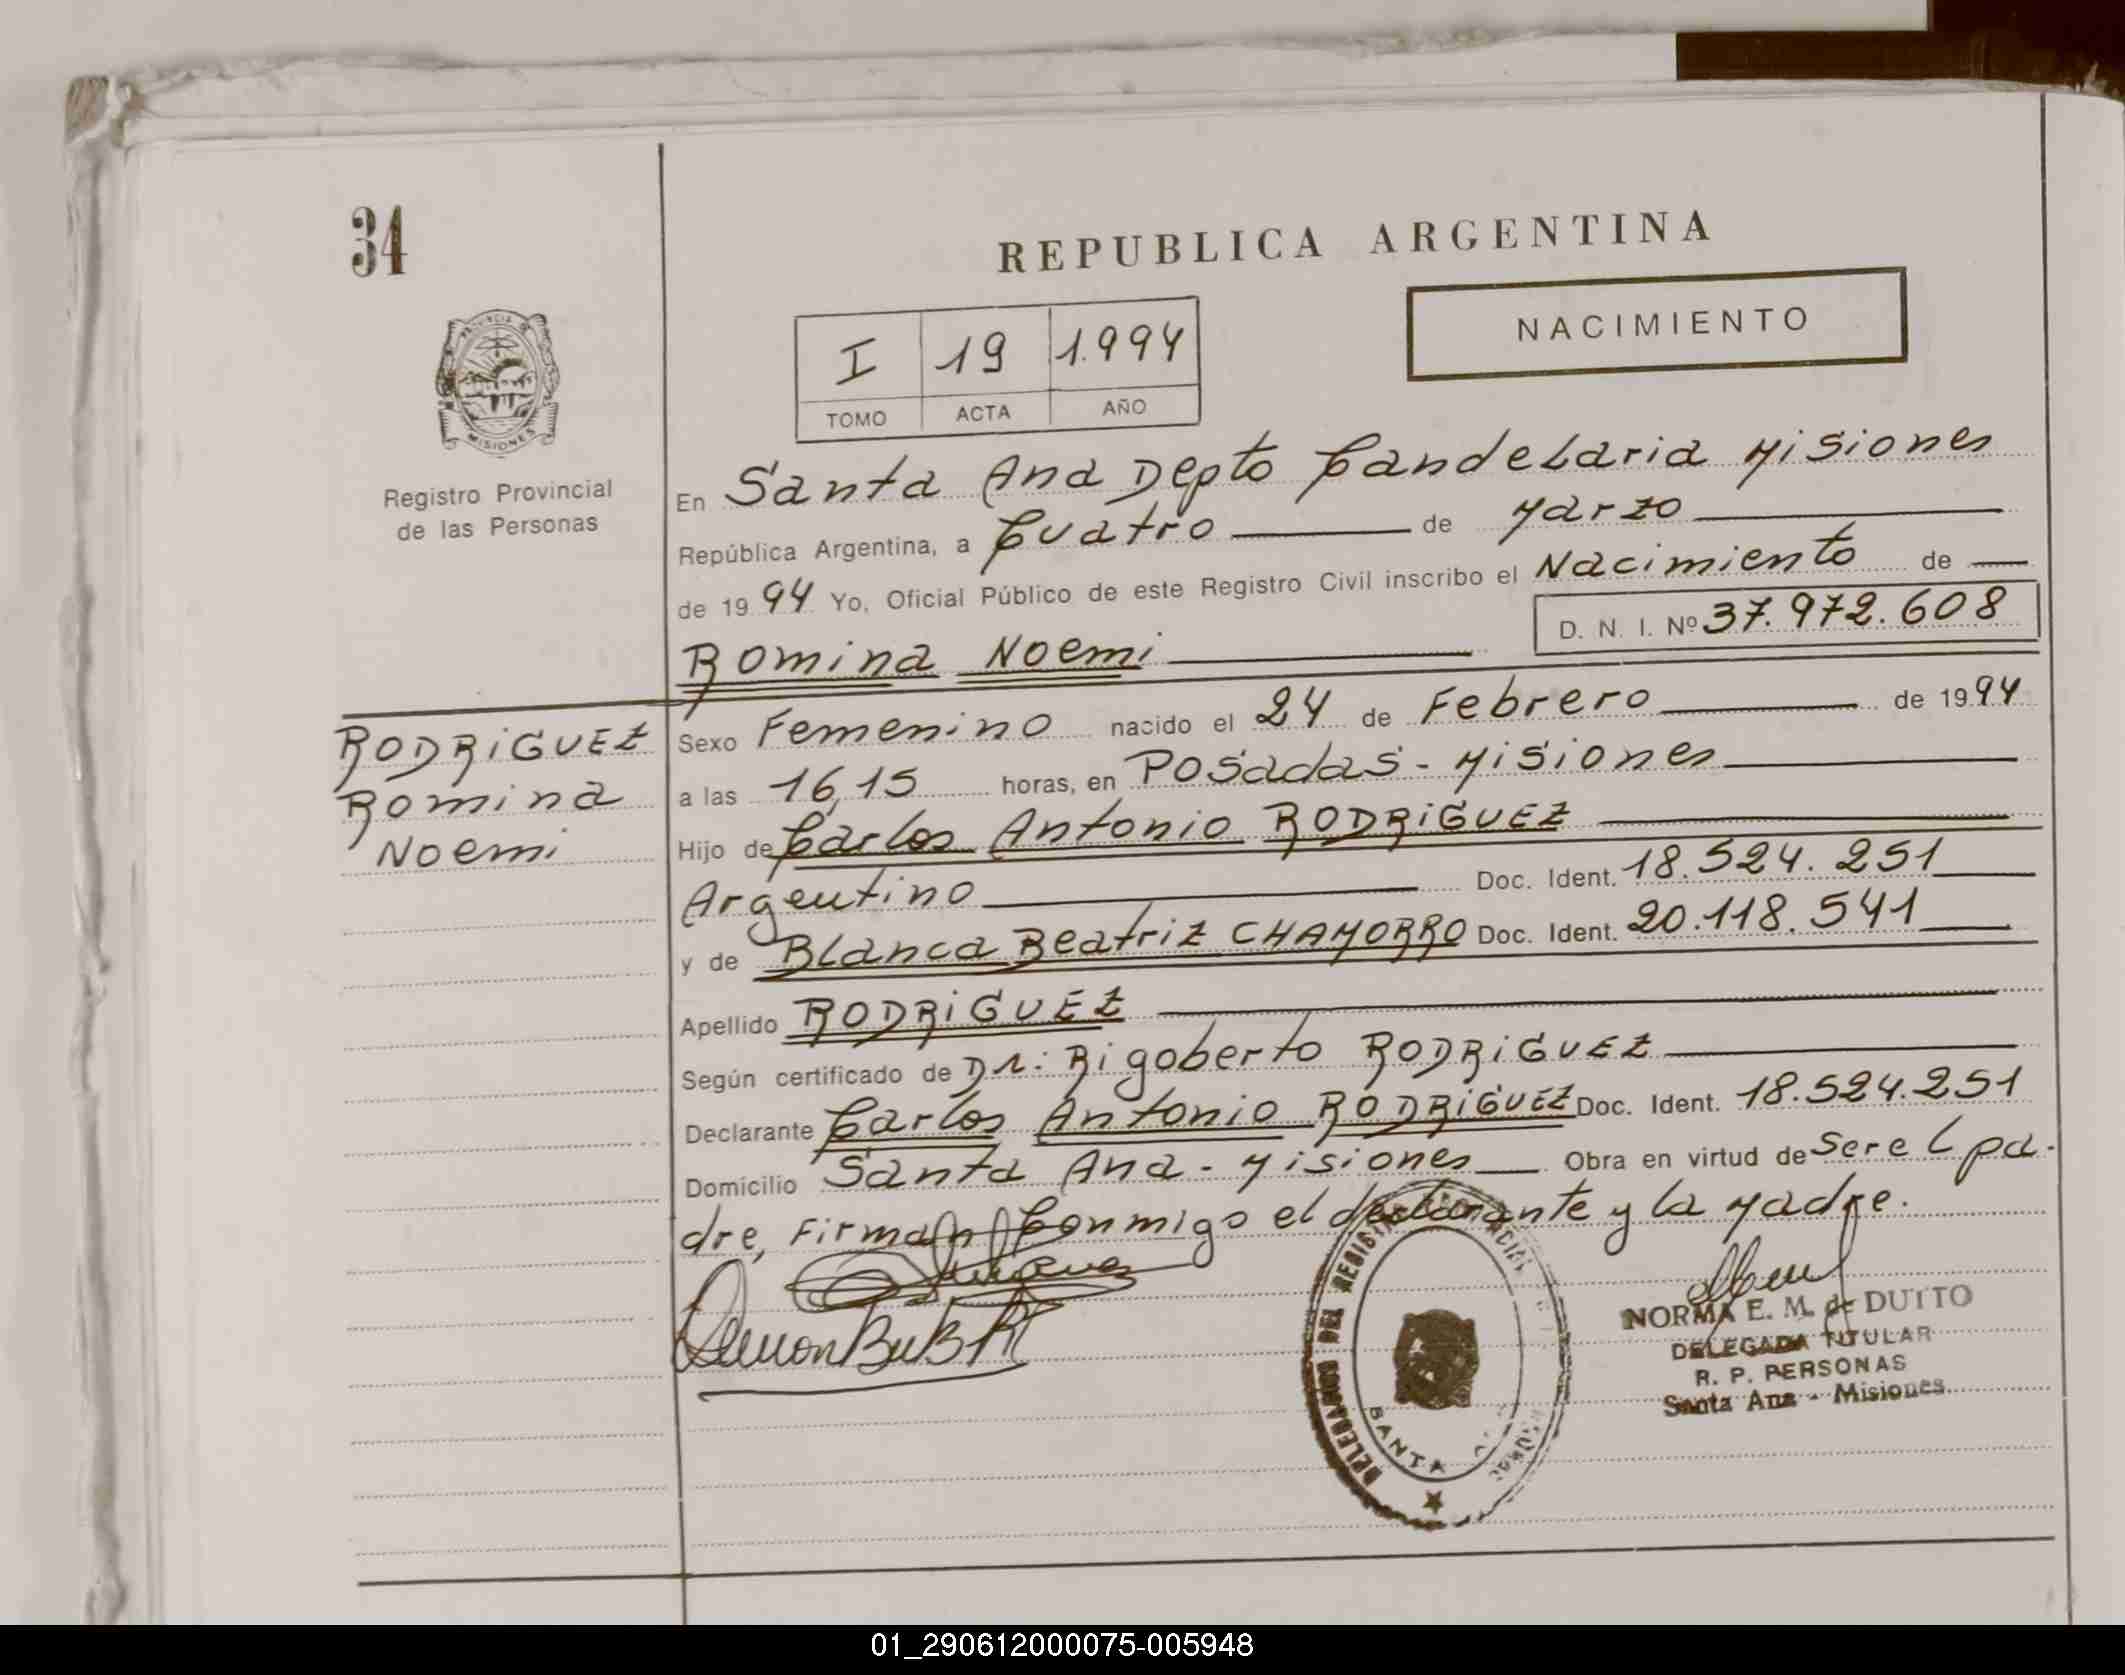 34
REPUBLICA ARGENTINA
NACIMIENTO
I 19 1.994
TOMO ACTA AÑO
PROVINCIA DE
MISIONES
Registro Provincial
de las Personas
En Santa Ana Depto Candelaria Misiones
República Argentina, a Cuatro de Marzo
de 1994 Yo, Oficial Público de este Registro Civil inscribo el Nacimiento de
D. N. I. Nº 37.972.608
Romina Noemi
RODRIGUEZ
Romina
Noemi
Sexo Femenino nacido el 24 de Febrero de 1994
a las 16,15 horas, en Posadas - Misiones
Hijo de Carlos Antonio RODRIGUEZ
Argentino Doc. Ident. 18.524.251
y de Blanca Beatriz CHAMORRO Doc. Ident. 20.118.541
Apellido RODRIGUEZ
Según certificado de Dr: Rigoberto RODRIGUEZ
Declarante Carlos Antonio RODRIGUEZ Doc. Ident. 18.524.251
Domicilio Santa Ana - Misiones Obra en virtud de Ser el pa-
dre, Firman Conmigo el declarante y la Madre.
DEL REGISTRO
SANTA
NORMA E. M. de DUTTO
DELEGADA TITULAR
R. P. PERSONAS
Santa Ana - Misiones
01_290612000075-005948